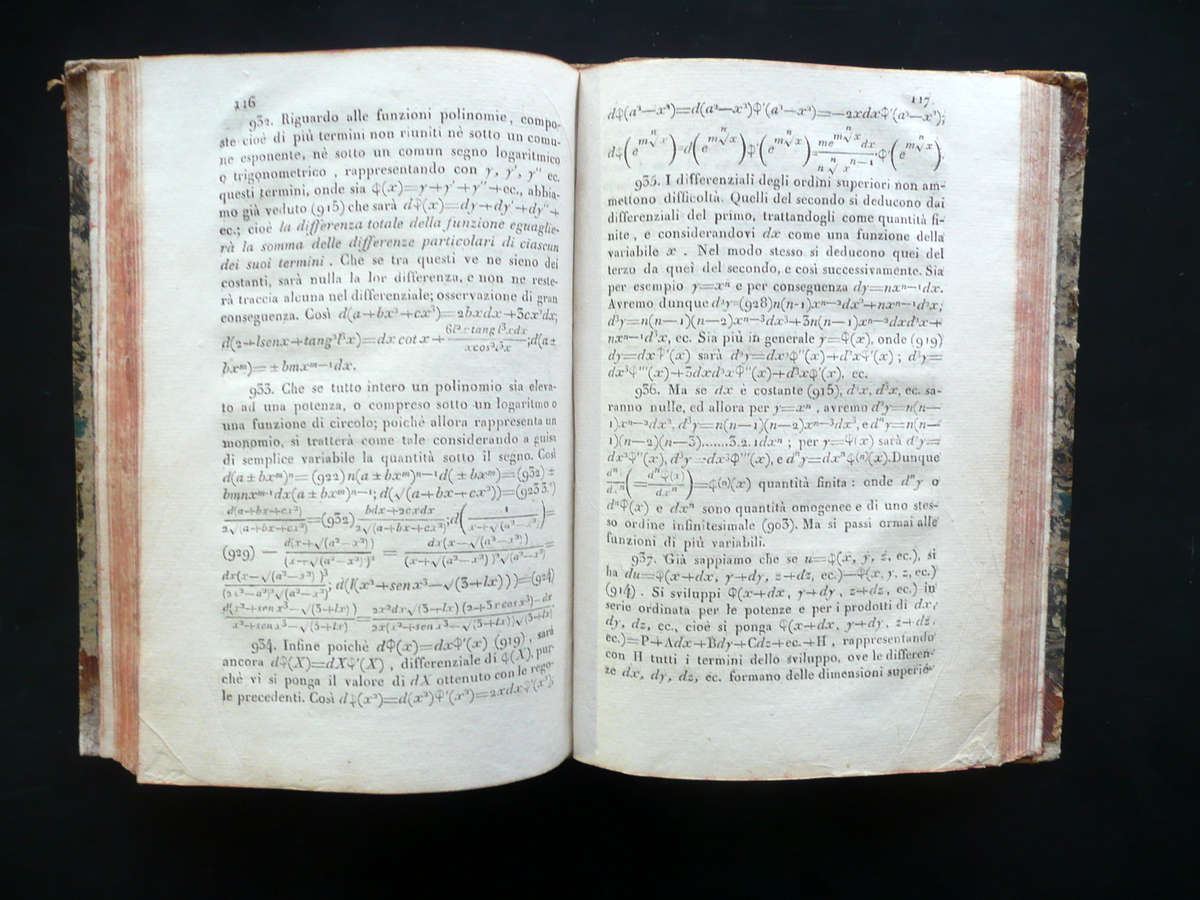 116
932. Riguardo alle funzioni polinomie, compo-
ste cioè di più termini non riuniti nè sotto un comu-
ne esponente, nè sotto un comun segno logaritmico
o trigonometrico, rappresentando con y, y', y'' ec.
questi termini, onde sia φ(x)=y+y'+y''+ec., abbia-
mo già veduto (915) che sarà dφ(x)=dy+dy'+dy''+
ec.; cioè la differenza totale della funzione eguaglie-
rà la somma delle differenze particolari di ciascun
dei suoi termini. Che se tra questi ve ne sieno dei
costanti, sarà nulla la lor differenza, e non ne reste-
rà traccia alcuna nel differenziale; osservazione di gran
conseguenza. Così d(a+bx²+cx³)=2bxdx+3cx²dx;
bxᵐ)=±bmxᵐ⁻¹dx.
933. Che se tutto intero un polinomio sia eleva-
to ad una potenza, o compreso sotto un logaritmo o
una funzione di circolo; poichè allora rappresenta un
monomio, si tratterà come tale considerando a guisa
di semplice variabile la quantità sotto il segno. Così
d(a±bxᵐ)ⁿ=(922)n(a±bxᵐ)ⁿ⁻¹d(±bxᵐ)=(932)±
bmnxᵐ⁻¹dx(a±bxᵐ)ⁿ⁻¹; d(√(a+bx+cx²))=(923.3.°)
d(a+bx+cx²)/2√(a+bx+cx²)=(932) bdx+2cxdx/2√(a+bx+cx²); d(1/x+√(a²−x²))=
(929) − d(x+√(a²−x²))/(x+√(a²−x²))² = dx(x−√(a²−x²))/(x+√(a²−x²))²√(a²−x²)=
d(l(x²+sen x³−√(3+lx)))=(924)
934. Infine poichè dφ(x)=dxφ'(x) (919), sarà
ancora dφ(X)=dXφ'(X), differenziale di φ(X), pur
chè vi si ponga il valore di dX ottenuto con le rego-
le precedenti. Così dφ(x²)=d(x²)φ'(x²)=2xdxφ'(x²),
117
dφ(a²−x²)=d(a²−x²)φ'(a²−x²)=−2xdxφ'(a²−x²);
935. I differenziali degli ordini superiori non am-
mettono difficoltà. Quelli del secondo si deducono dai
differenziali del primo, trattandogli come quantità fi-
nite, e considerandovi dx come una funzione della
variabile x. Nel modo stesso si deducono quei del
terzo da quei del secondo, e così successivamente. Sia
per esempio y=xⁿ e per conseguenza dy=nxⁿ⁻¹dx.
Avremo dunque d²y=(928)n(n-1)xⁿ⁻²dx²+nxⁿ⁻¹d²x;
d³y=n(n−1)(n−2)xⁿ⁻³dx³+3n(n−1)xⁿ⁻²dxd²x+
nxⁿ⁻¹d³x, ec. Sia più in generale y=φ(x), onde (919)
dy=dxφ'(x) sarà d²y=dx²φ''(x)+d²xφ'(x); d³y=
dx³φ'''(x)+3dxd²xφ''(x)+d³xφ'(x), ec.
936. Ma se dx è costante (915), d²x, d³x, ec. sa-
ranno nulle, ed allora per y=xⁿ, avremo d²y=n(n—
1)xⁿ⁻²dx², d³y=n(n−1)(n−2)xⁿ⁻³dx³, e dⁿy=n(n—
1)(n−2)(n−3)......3.2.1dxⁿ; per y=φ(x) sarà d²y=
dx²φ''(x), d³y=dx³φ'''(x), e dⁿy=dxⁿφ⁽ⁿ⁾(x). Dunque
(=dⁿφ(x)/dxⁿ)=φ⁽ⁿ⁾(x) quantità finita: onde dⁿy o
dⁿφ(x) e dxⁿ sono quantità omogenee e di uno stes-
so ordine infinitesimale (903). Ma si passi ormai alle
funzioni di più variabili.
937. Già sappiamo che se u=φ(x, y, z, ec.), si
ha du=φ(x+dx, y+dy, z+dz, ec.)−φ(x, y, z, ec.)
(914). Si sviluppi φ(x+dx, y+dy, z+dz, ec.) in
serie ordinata per le potenze e per i prodotti di dx,
dy, dz, ec., cioè si ponga φ(x+dx, y+dy, z+dz,
ec.)=P+Adx+Bdy+Cdz+ec.+H, rappresentando
con H tutti i termini dello sviluppo, ove le differen-
ze dx, dy, dz, ec. formano delle dimensioni superio-